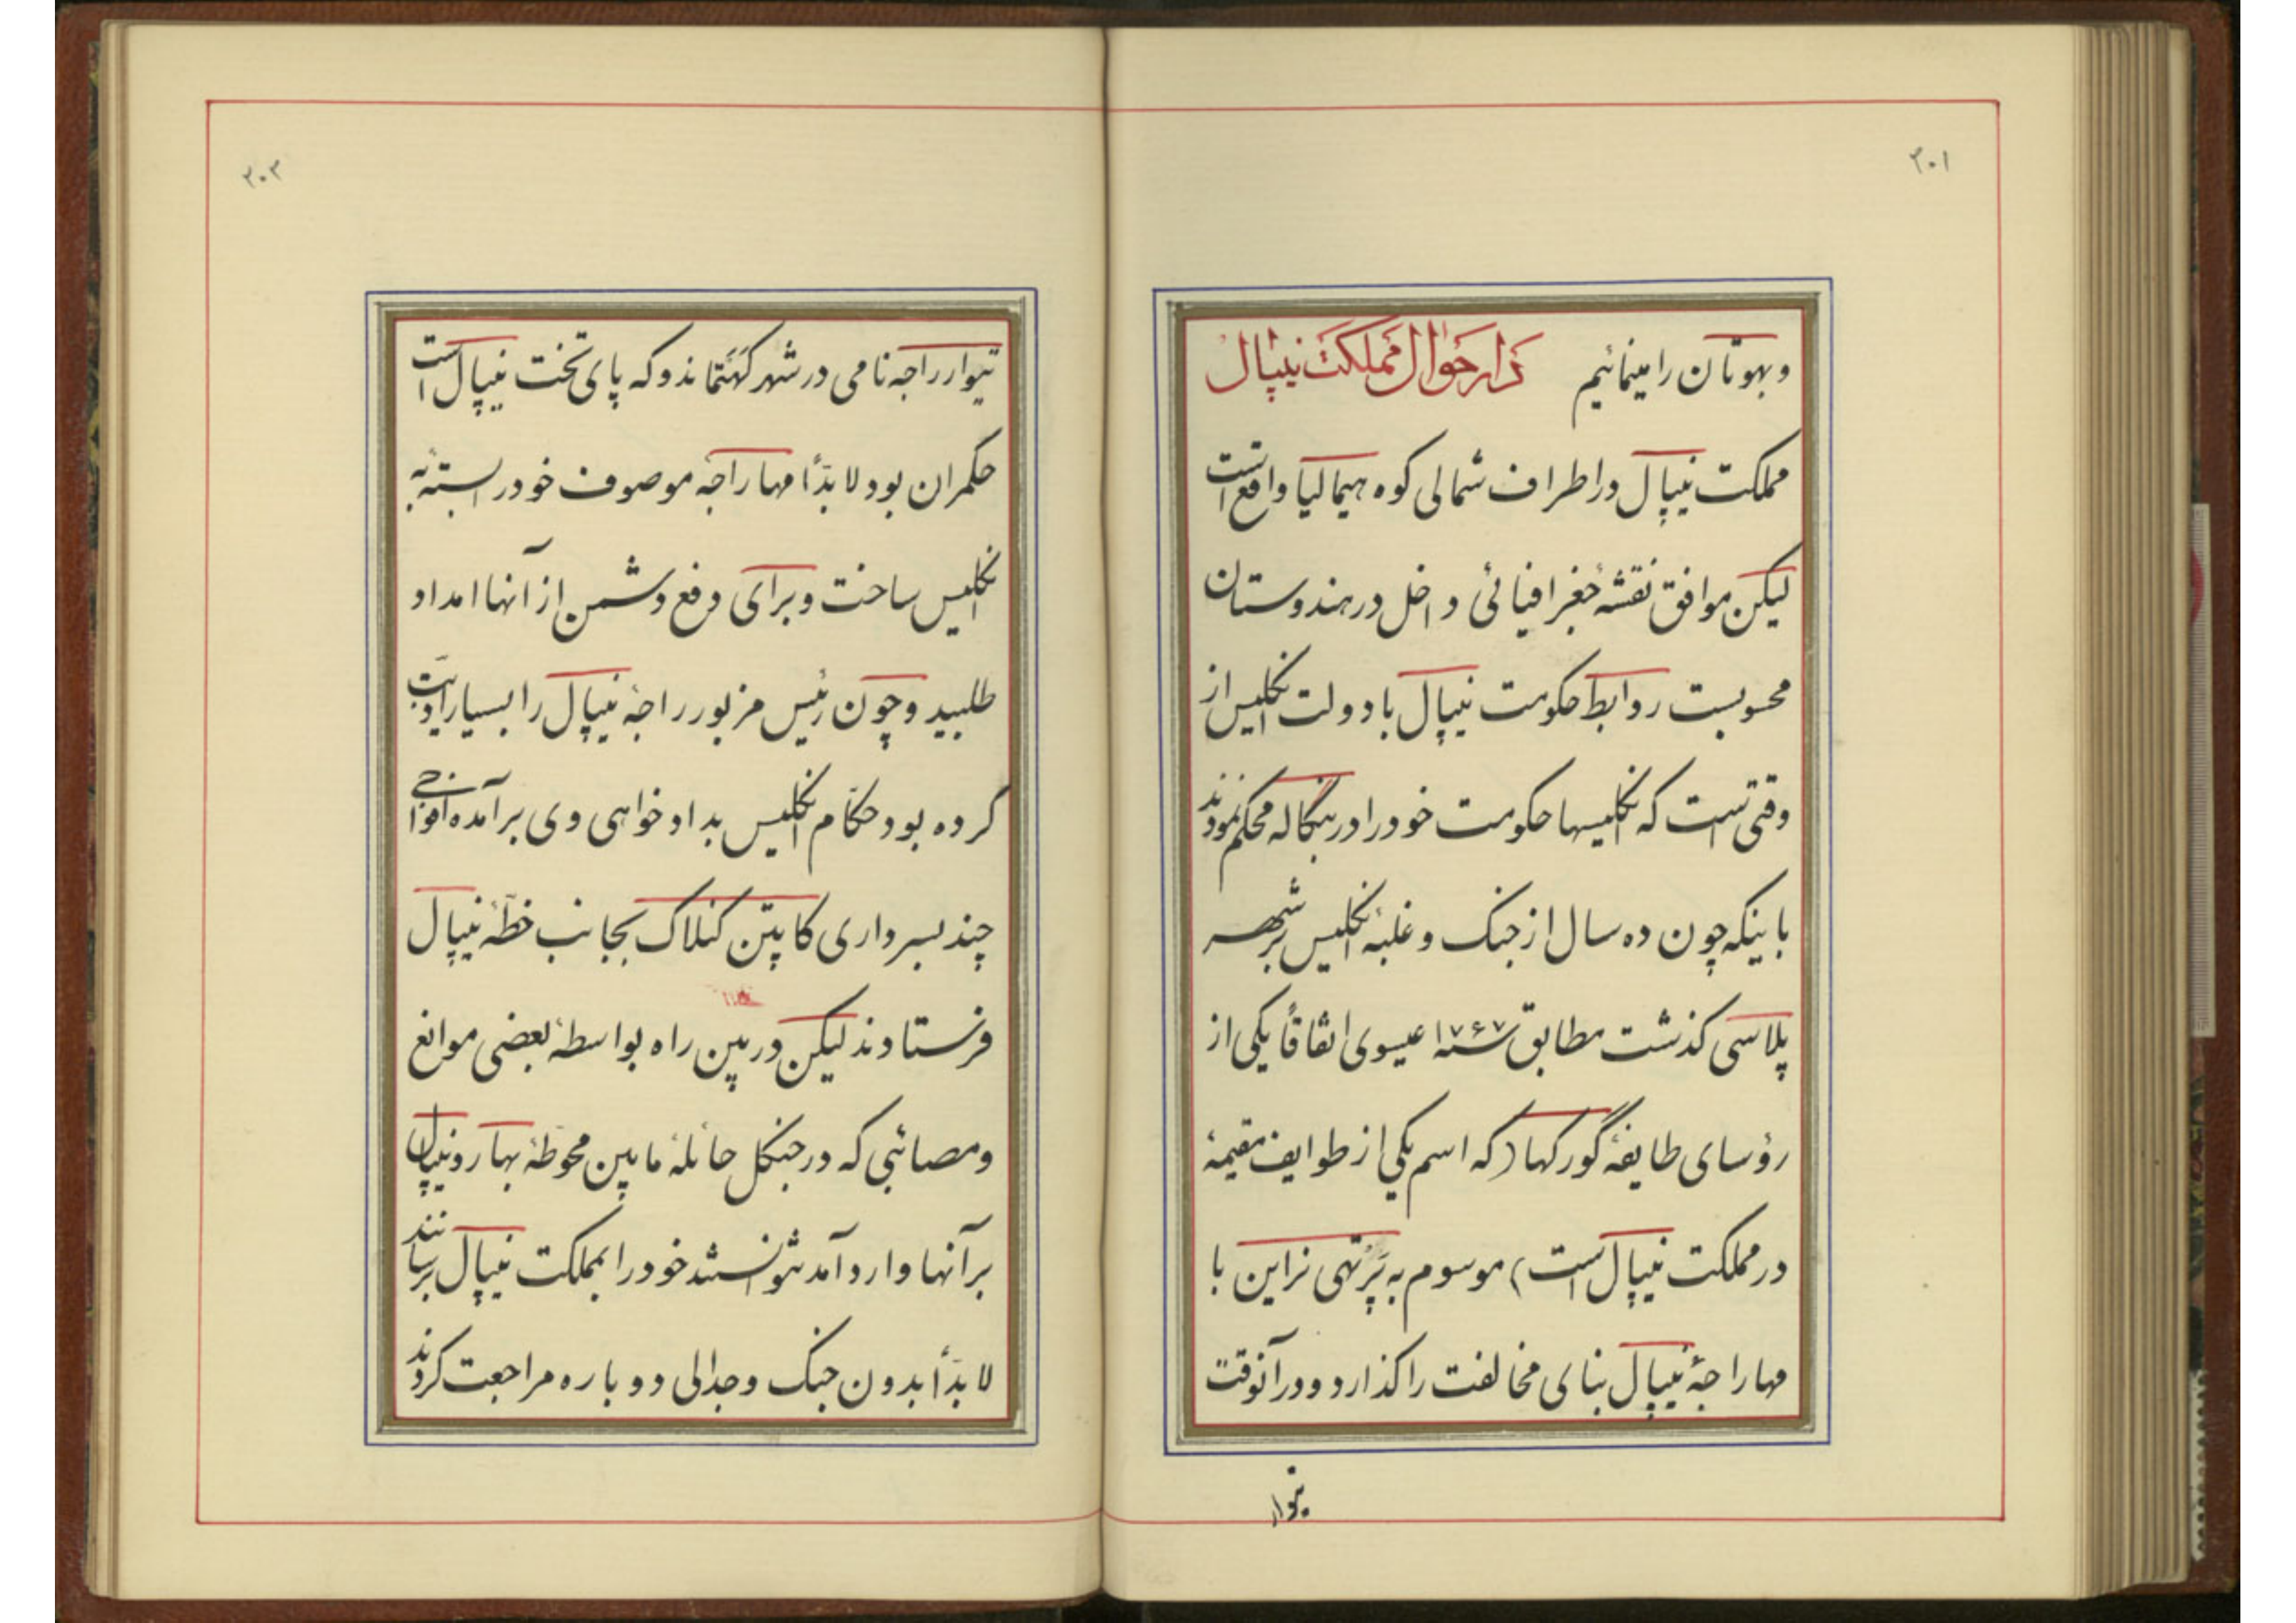 ۳۰۱
و بهوتان را مینمائیم ذکر احوال مملکت نیپال
مملکت نیپال در اطراف شمالی کوه هیمالیا واقع است
لیکن موافق نقشه جغرافیائی داخل در هندوستان
محسوبست روابط حکومت نیپال با دولت انگلیس از
وقتی است که انگلیسها حکومت خود را در بنگاله محکم نمودند
باینکه چون ده سال از جنگ و غلبهٔ انگلیس بر شهر
پلاسی گذشت مطابق سنه ۱۷۶۷ عیسوی اتفاقاً یکی از
رؤسای طایفهٔ گورکها (که اسم یکی از طوایف مقیمهٔ
در مملکت نیپال است) موسوم به پرتهی نراین با
مهاراجهٔ نیپال بنای مخالفت را گذارد و در آنوقت
نیوار
۳۰۲
نیوار راجه نامی در شهر کهتماندو که پای تخت نیپال است
حکمران بود لابدّاً مهاراجهٔ موصوف خود را بسته به
انگلیس ساخت و برای دفع دشمن از آنها امداد
طلبید و چون رئیس مزبور راجهٔ نیپال را بسیار اذیت
کرده بود حکّام انگلیس بدادخواهی وی برآمده افواجی
چند بسرداری کاپتن کنلاک بجانب خطّهٔ نیپال
فرستادند لیکن در بین راه بواسطهٔ بعضی موانع
و مصائبی که در جنگل حائلهٔ مابین محوطهٔ بهار و نیپال
بر آنها وارد آمد نتوانستند خود را بمملکت نیپال برسانند
لابدّاً بدون جنگ و جدالی دوباره مراجعت کردند